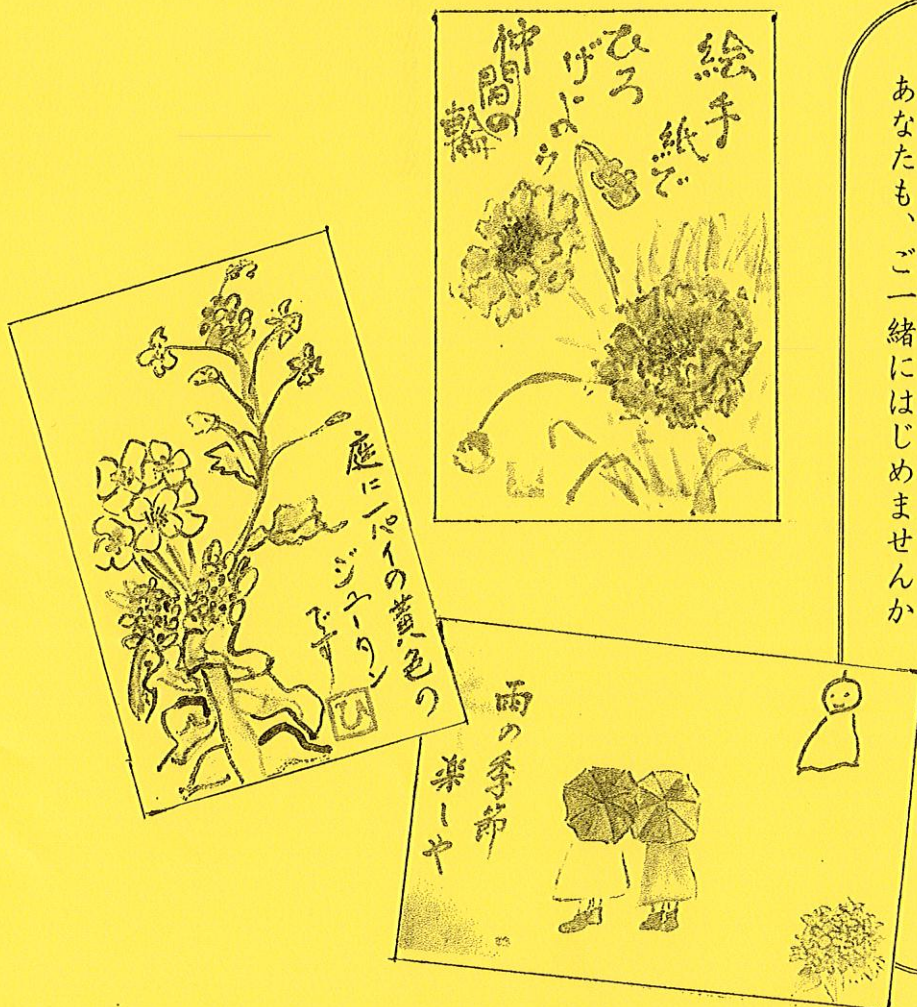 あなたも、ご一緒にはじめませんか
絵手
紙で
ひろ
げよう
仲間の
輪
庭に一パイの黄色の
ジュータン
です
ひ
雨の季節
楽しや